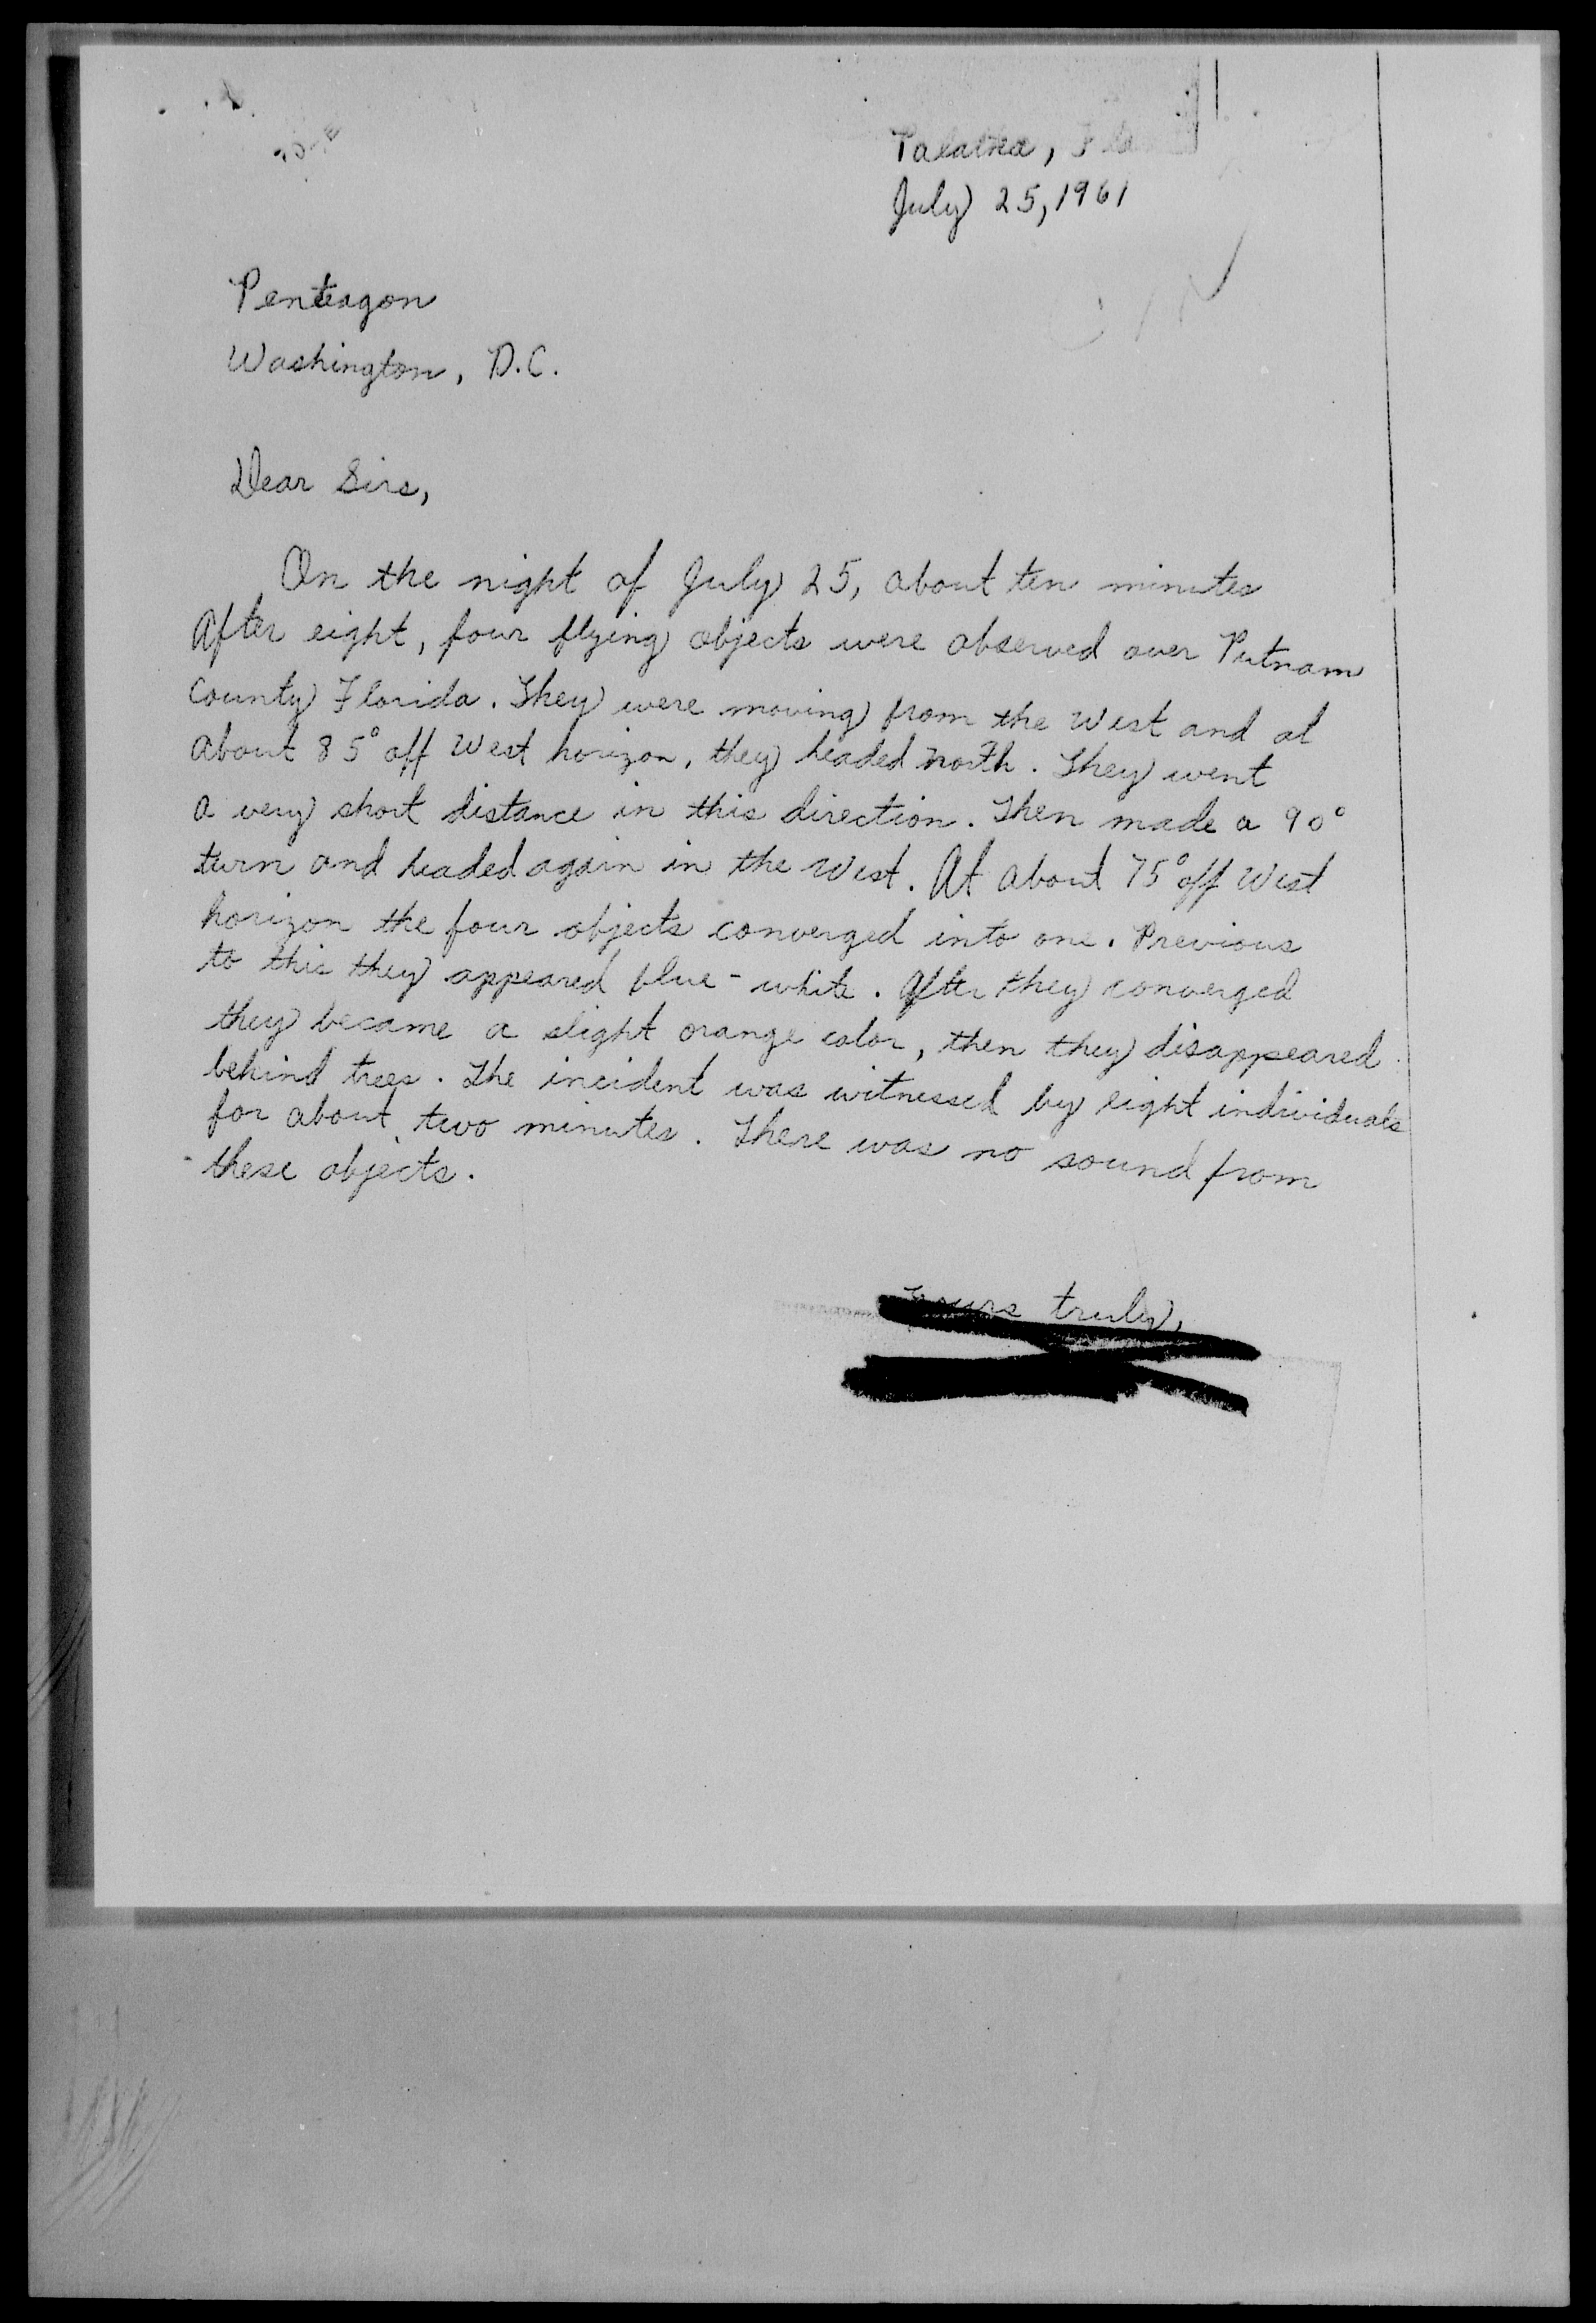 Palatka, Fla
July 25, 1961
Pentagon
Washington, D.C.
Dear Sirs,
On the night of July 25, about ten minutes
after eight, four flying objects were observed over Putnam
County Florida. They were moving from the West and at
about 85° off West horizon, they headed North. They went
a very short distance in this direction. Then made a 90°
turn and headed again in the West. At about 75° off West
horizon the four objects converged into one. Previous
to this they appeared blue-white. After they converged
they became a slight orange color, then they disappeared
behind trees. The incident was witnessed by eight individuals
for about two minutes. There was no sound from
these objects.
Yours truly,